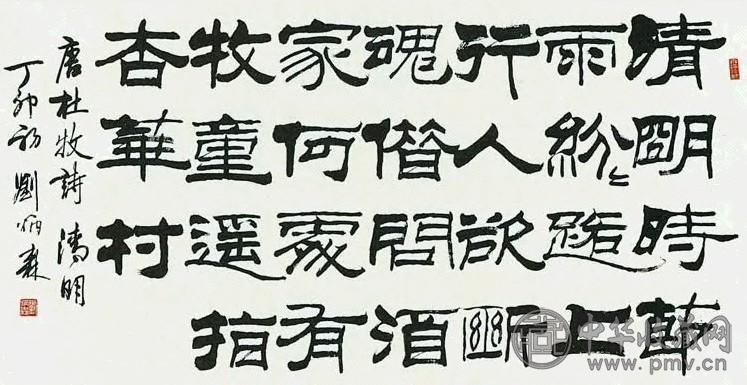 清明時節
雨紛〻路上
行人欲斷
魂借問酒
家何處有
牧童遙指
杏華村
唐杜牧詩 清明
丁卯初 劉炳森
中华收藏网
www.pmv.cn